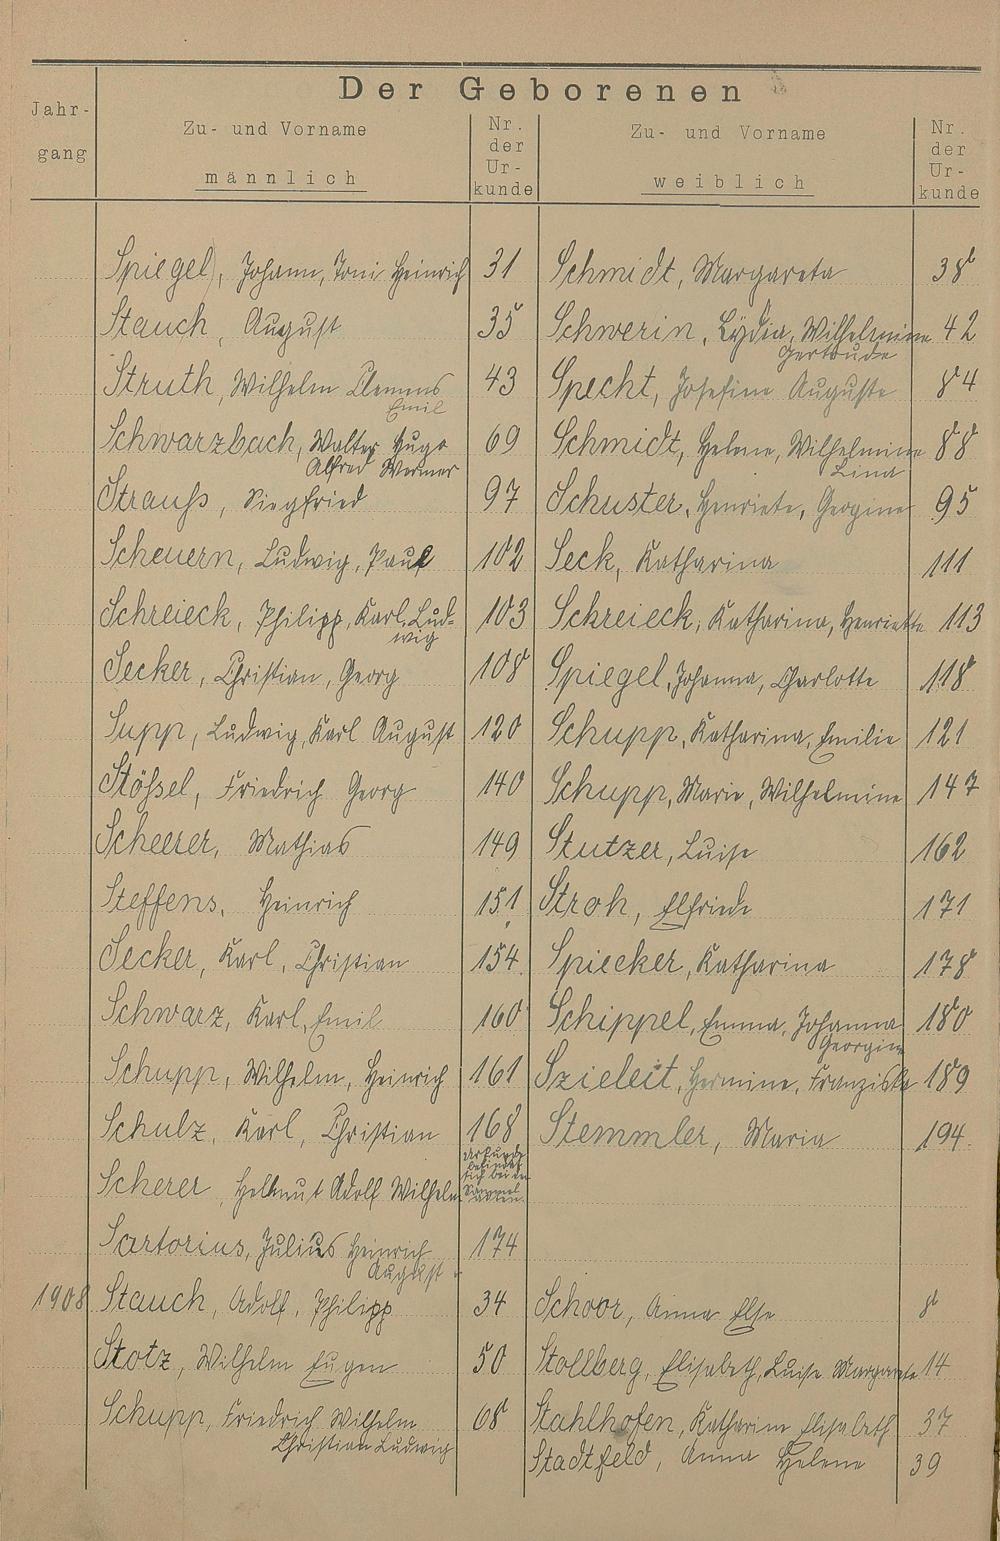 Der Geborenen
Jahr-
gang
Zu- und Vorname
männlich
Nr.
der
Ur-
kunde
Zu- und Vorname
weiblich
Nr.
der
Ur-
kunde
Spiegel, Johann, Toni Heinrich 31 Schmidt, Margareta 38
Stauch, August 35 Schwerin, Lydia, Wilhelmine 42
Gertrude
Struth, Wilhelm Clemens 43 Specht, Josefine Auguste 84
Emil
Schwarzbach, Walter Hugo 69 Schmidt, Helene, Wilhelmine 88
Alfred Werner Lina
Strauß, Siegfried 97 Schuster, Henriete, Georgine 95
Scheuern, Ludwig, Paul 102 Seck, Katharina 111
Schreieck, Philipp, Karl, Lud- 103 Schreieck, Katharina, Henriette 113
wig
Secker, Christian, Georg 108 Spiegel, Johanna, Charlotte 118
Supp, Ludwig, Karl August 120 Schupp, Katharina, Emilie 121
Stößel, Friedrich Georg 140 Schupp, Marie, Wilhelmine 147
Scheerer, Mathias 149 Stutzer, Luise 162
Steffens, Heinrich 151 Stroh, Elfriede 171
Secker, Karl, Christian 154 Spiecker, Katharina 178
Schwarz, Karl, Emil 160 Schippel, Emma, Johanna 180
Georgine
Schupp, Wilhelm, Heinrich 161 Szieleit, Hermine, Franziska 189
Schulz, Karl, Christian 168 Stemmler, Maria 194
Urkunde
befindet
sich bei den
Sammel
akten.
Scherer, Hellmut Adolf Wilhelm
Sartorius, Julius Heinrich 174
August
1908 Stauch, Adolf, Philipp 34 Schoor, Anna Else 8
Stotz, Wilhelm Eugen 50 Stollberg, Elisabeth, Luise Margarete 14
Schupp, Friedrich Wilhelm 68 Stahlhofen, Katharina Elisabeth 37
Christian Ludwig
Stadtfeld, Anna Helene 39